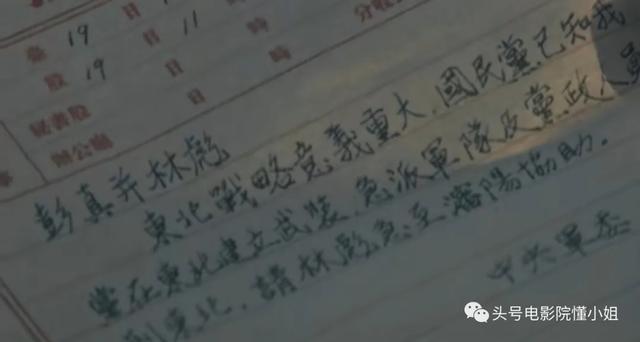 分收
19日11時
股19日 時
秘書股 日 時
辦公廳
彭真并林彪
東北戰略意義重大,國民黨已知我
黨在東北建立武裝,急派軍隊及黨政人員
到東北,請林彪急至瀋陽協助。
中央軍委
头号电影院懂小姐